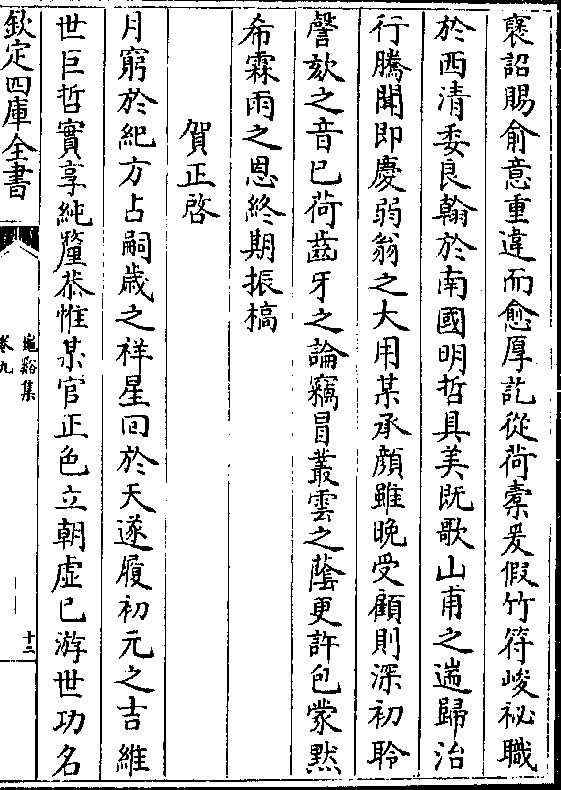 襃詔賜俞意重違而愈厚訖從荷橐爰假竹符峻祕職
於西清委良翰於南國明哲具美既歌山甫之遄歸治
行騰聞即慶弱翁之大用某承顔雖晚受顧則深初聆
謦欬之音已荷齒牙之論竊冒叢雲之蔭更許包蒙黙
希霖雨之恩終期振槁
賀正啓
月窮於紀方占嗣歳之祥星回於天遂履初元之吉維
世巨哲實享純釐恭惟某官正色立朝虚已游世功名
欽定四庫全書
龜谿集
卷九
十二